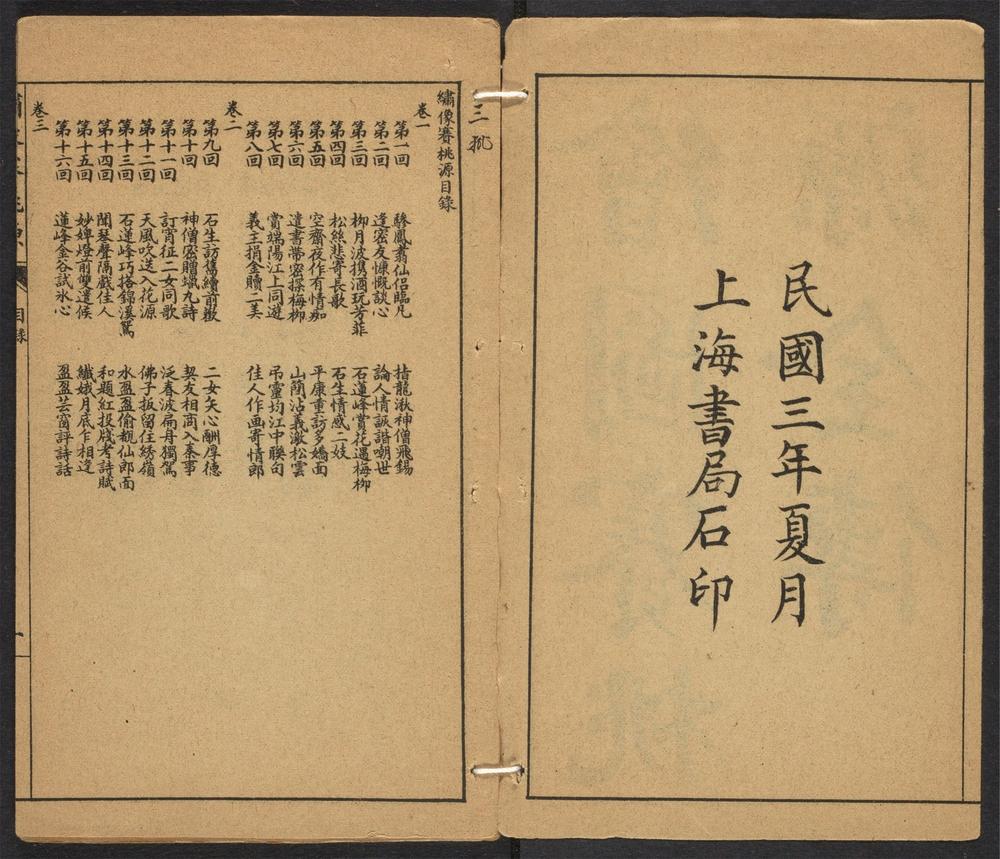 民國三年夏月
上海書局石印
繡像賽桃源目錄
卷一
第一回 驂鳳翥仙侶臨凡 指龍湫神僧飛錫
第二回 逢密友慷慨談心 論人情詼諧嘲世
第三回 柳月波携酒玩芳菲 石蓮峰賞花遇梅柳
第四回 松絲悲寄長歌 石生情感二妓
第五回 空齋夜作有情痴 平康重訪多嬌面
第六回 遣書帶密探梅柳 山蘭沾義激松雲
第七回 賞端陽江上同遊 吊靈均江中聯句
第八回 義士捐金贖二美 佳人作画寄情郎
卷二
第九回 石生訪舊續前歡 二女矢心酬厚德
第十回 神僧密贈蠟丸詩 契友相商入秦事
第十一回 訂宵征二女同歌 泛春波扁舟獨駕
第十二回 天風吹送入花源 佛子扳留住綉嶺
第十三回 石蓮峰巧搭錦溪駕 水盈盈偷覩仙郎面
第十四回 聞琴聲隔戲佳人 和題紅投牋考詩賦
第十五回 妙婢燈前雙遣候 纖娥月底乍相逢
第十六回 蓮峰金谷試氷心 盈盈芸窗評詩話
卷三
目錄